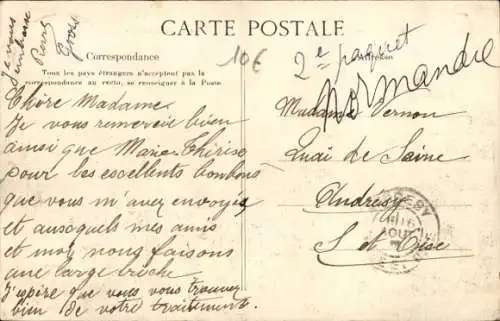 Je vous
embrasse
Pour
Gros
CARTE POSTALE
10€
2e paquet
Normandie
Correspondance
Tous les pays étrangers n'acceptent pas la
correspondance au recto, se renseigner à la Poste
Chère Madame
Je vous remercie bien
ainsi que Marie Thérise
pour les escellents bonbons
que vous m'avez envoyés
et auxquels mes amis
et moi nous faisons
une large brèche
J'espire que vous vous trouvez
bien de votre traitement.
Madame Vernon
Quai de Seine
Andresy
S et Oise
ANDRESY
AOUT